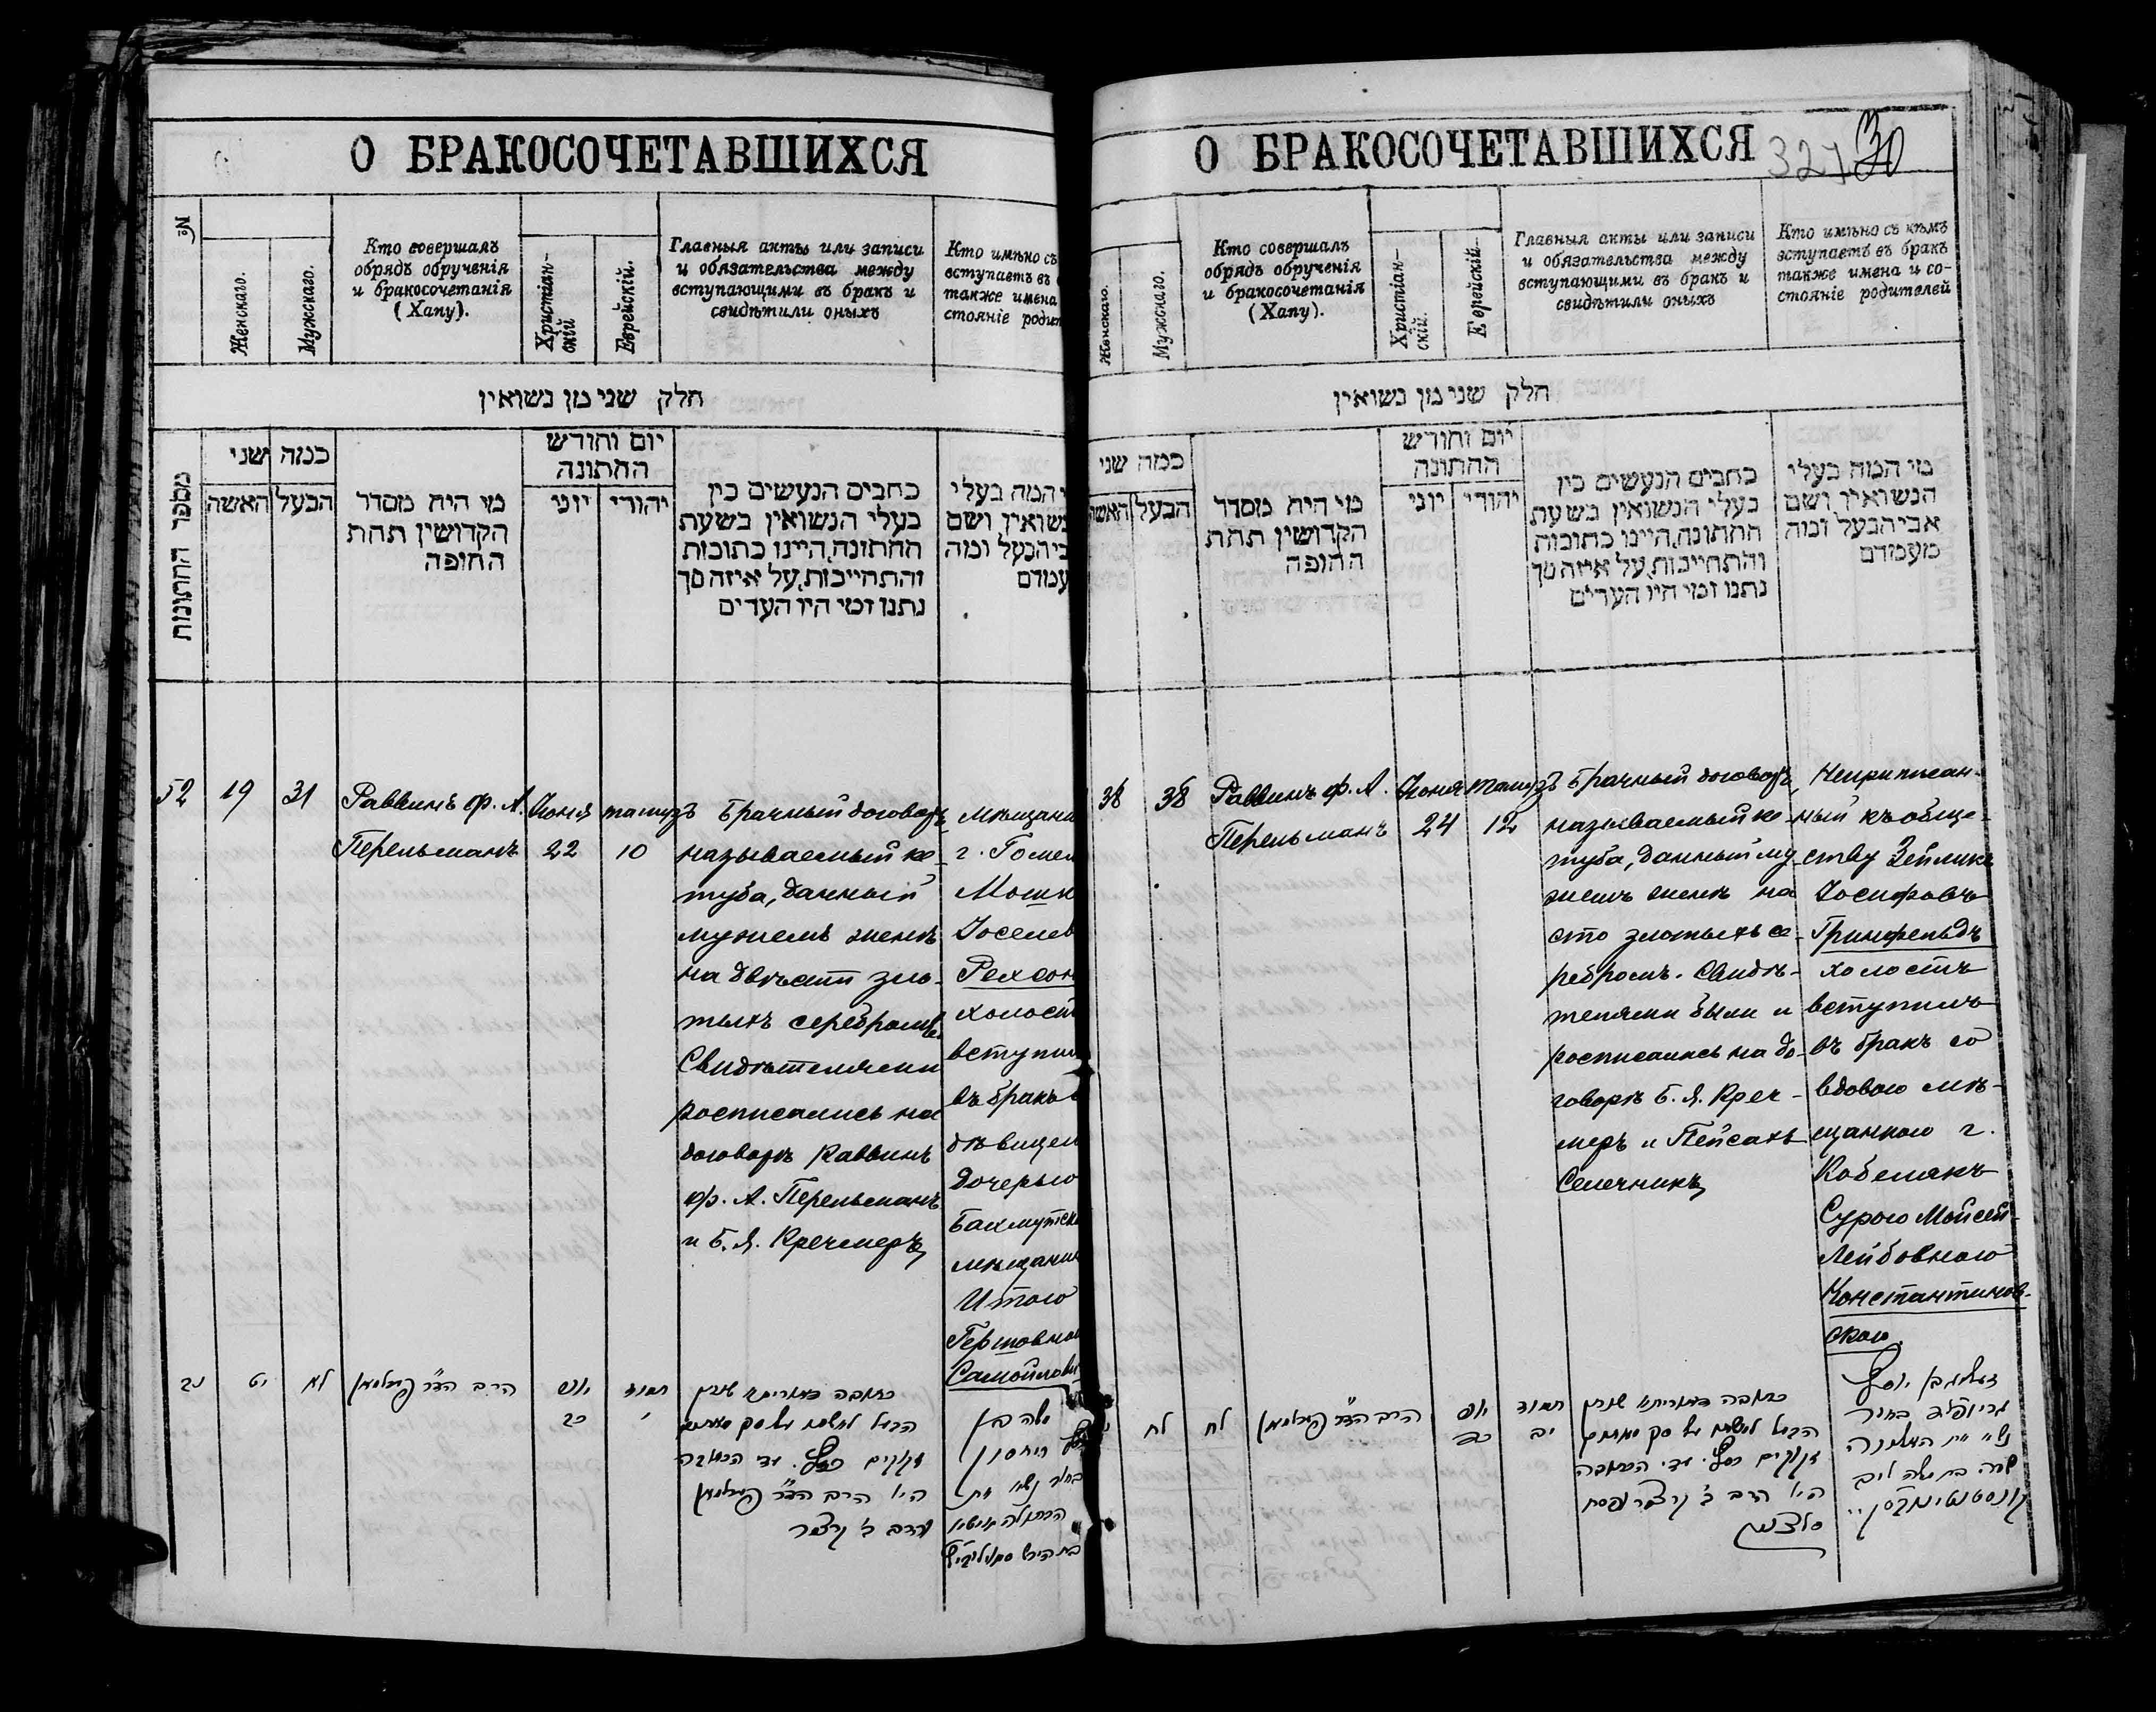 О БРАКОСОЧЕТАВШИХСЯ
№
Женскаго.
Мужскаго.
Кто совершалъ
обрядъ обрученія
и бракосочетанія
(Хапу).
Христіан-
скій
Еврейскій.
Главныя акты или записи
и обязательства между
вступающими въ бракъ и
свидѣтили оныхъ
Кто имѣно съ
вступаетъ въ
также имена
стояніе родит
חלק שני מן נשואין
מספר החתונות
כמה שני
האשה
הבעל
מי היה מסדר
הקדושין תחת
החופה
יום וחודש
החתונה
יוני
יהודי
כתבים הנעשים בין
בעלי הנשואין בשעת
החתונה, היינו כתובות
והתחייבות, על איזה סך
נתנו ומי היו העדים
המה בעלי
נשואין ושם
ביהבעל ומה
עמדם
52
19
31
Раввинъ ф. А.
Перельманъ
Іюня
22
тамузъ
10
Брачный договоръ,
называемый ке-
туба, данный
мужемъ женѣ
на двѣсти зло-
тыхъ серебромъ.
Свидѣтелями
росписались на
договорѣ Раввинъ
ф. А. Перельманъ
и Б. Я. Кречмеръ
мѣщани
г. Гомел
Мошк
Іоселев
Рехсон
холост
вступил
въ бракъ с
дѣвицей
дочерью
Бахмутск
мѣщанин
Итою
Гершовною
Самойлови
נב
יט
לא
הרב הד״ר פערלמאן
יוני
כב
תמוז
י
הרב הד״ר פערלמאן
משה בן
О БРАКОСОЧЕТАВШИХСЯ
327
30
Женскаго.
Мужскаго.
Кто совершалъ
обрядъ обрученія
и бракосочетанія
(Хапу).
Христіан-
скій.
Еврейскій.
Главныя акты или записи
и обязательства между
вступающими въ бракъ и
свидѣтили оныхъ
Кто имѣно съ кѣмъ
вступаетъ въ бракъ
также имена и со-
стояніе родителей
חלק שני מן נשואין
כמה שני
האשה
הבעל
מי היה מסדר
הקדושין תחת
החופה
יום וחודש
החתונה
יוני
יהודי
כתבים הנעשים בין
בעלי הנשואין בשעת
החתונה, היינו כתובות
והתחייבות, על איזה סך
נתנו ומי היו העדים
מי המה בעלי
הנשואין ושם
אביהבעל ומה
מעמדם
38
38
Раввинъ ф. А.
Перельманъ
Іюня
24
тамузъ
12
Брачный договоръ,
называемый ке-
туба, данный му-
жемъ женѣ на
сто злотыхъ се-
ребромъ. Свидѣ-
телями были и
росписались на до-
говорѣ Б. Я. Креч-
меръ и Пейсахъ
Селечникъ
Неприписан-
ный къ обще-
ству Зейликъ
Іосифовъ
Гринфельдъ
холостъ
вступилъ
въ бракъ со
вдовою мѣ-
щанкою г.
Кобелякъ
Сурою Мойсей-
Лейбовною
Константинов-
скою
לח
לח
הרב הד״ר פערלמאן
יוני
כד
תמוז
יב